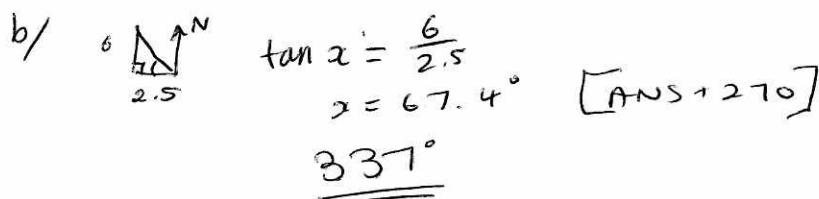 b/ 6 N tan x = 6/2.5
2.5 x = 67.4° [ANS + 270]
337°